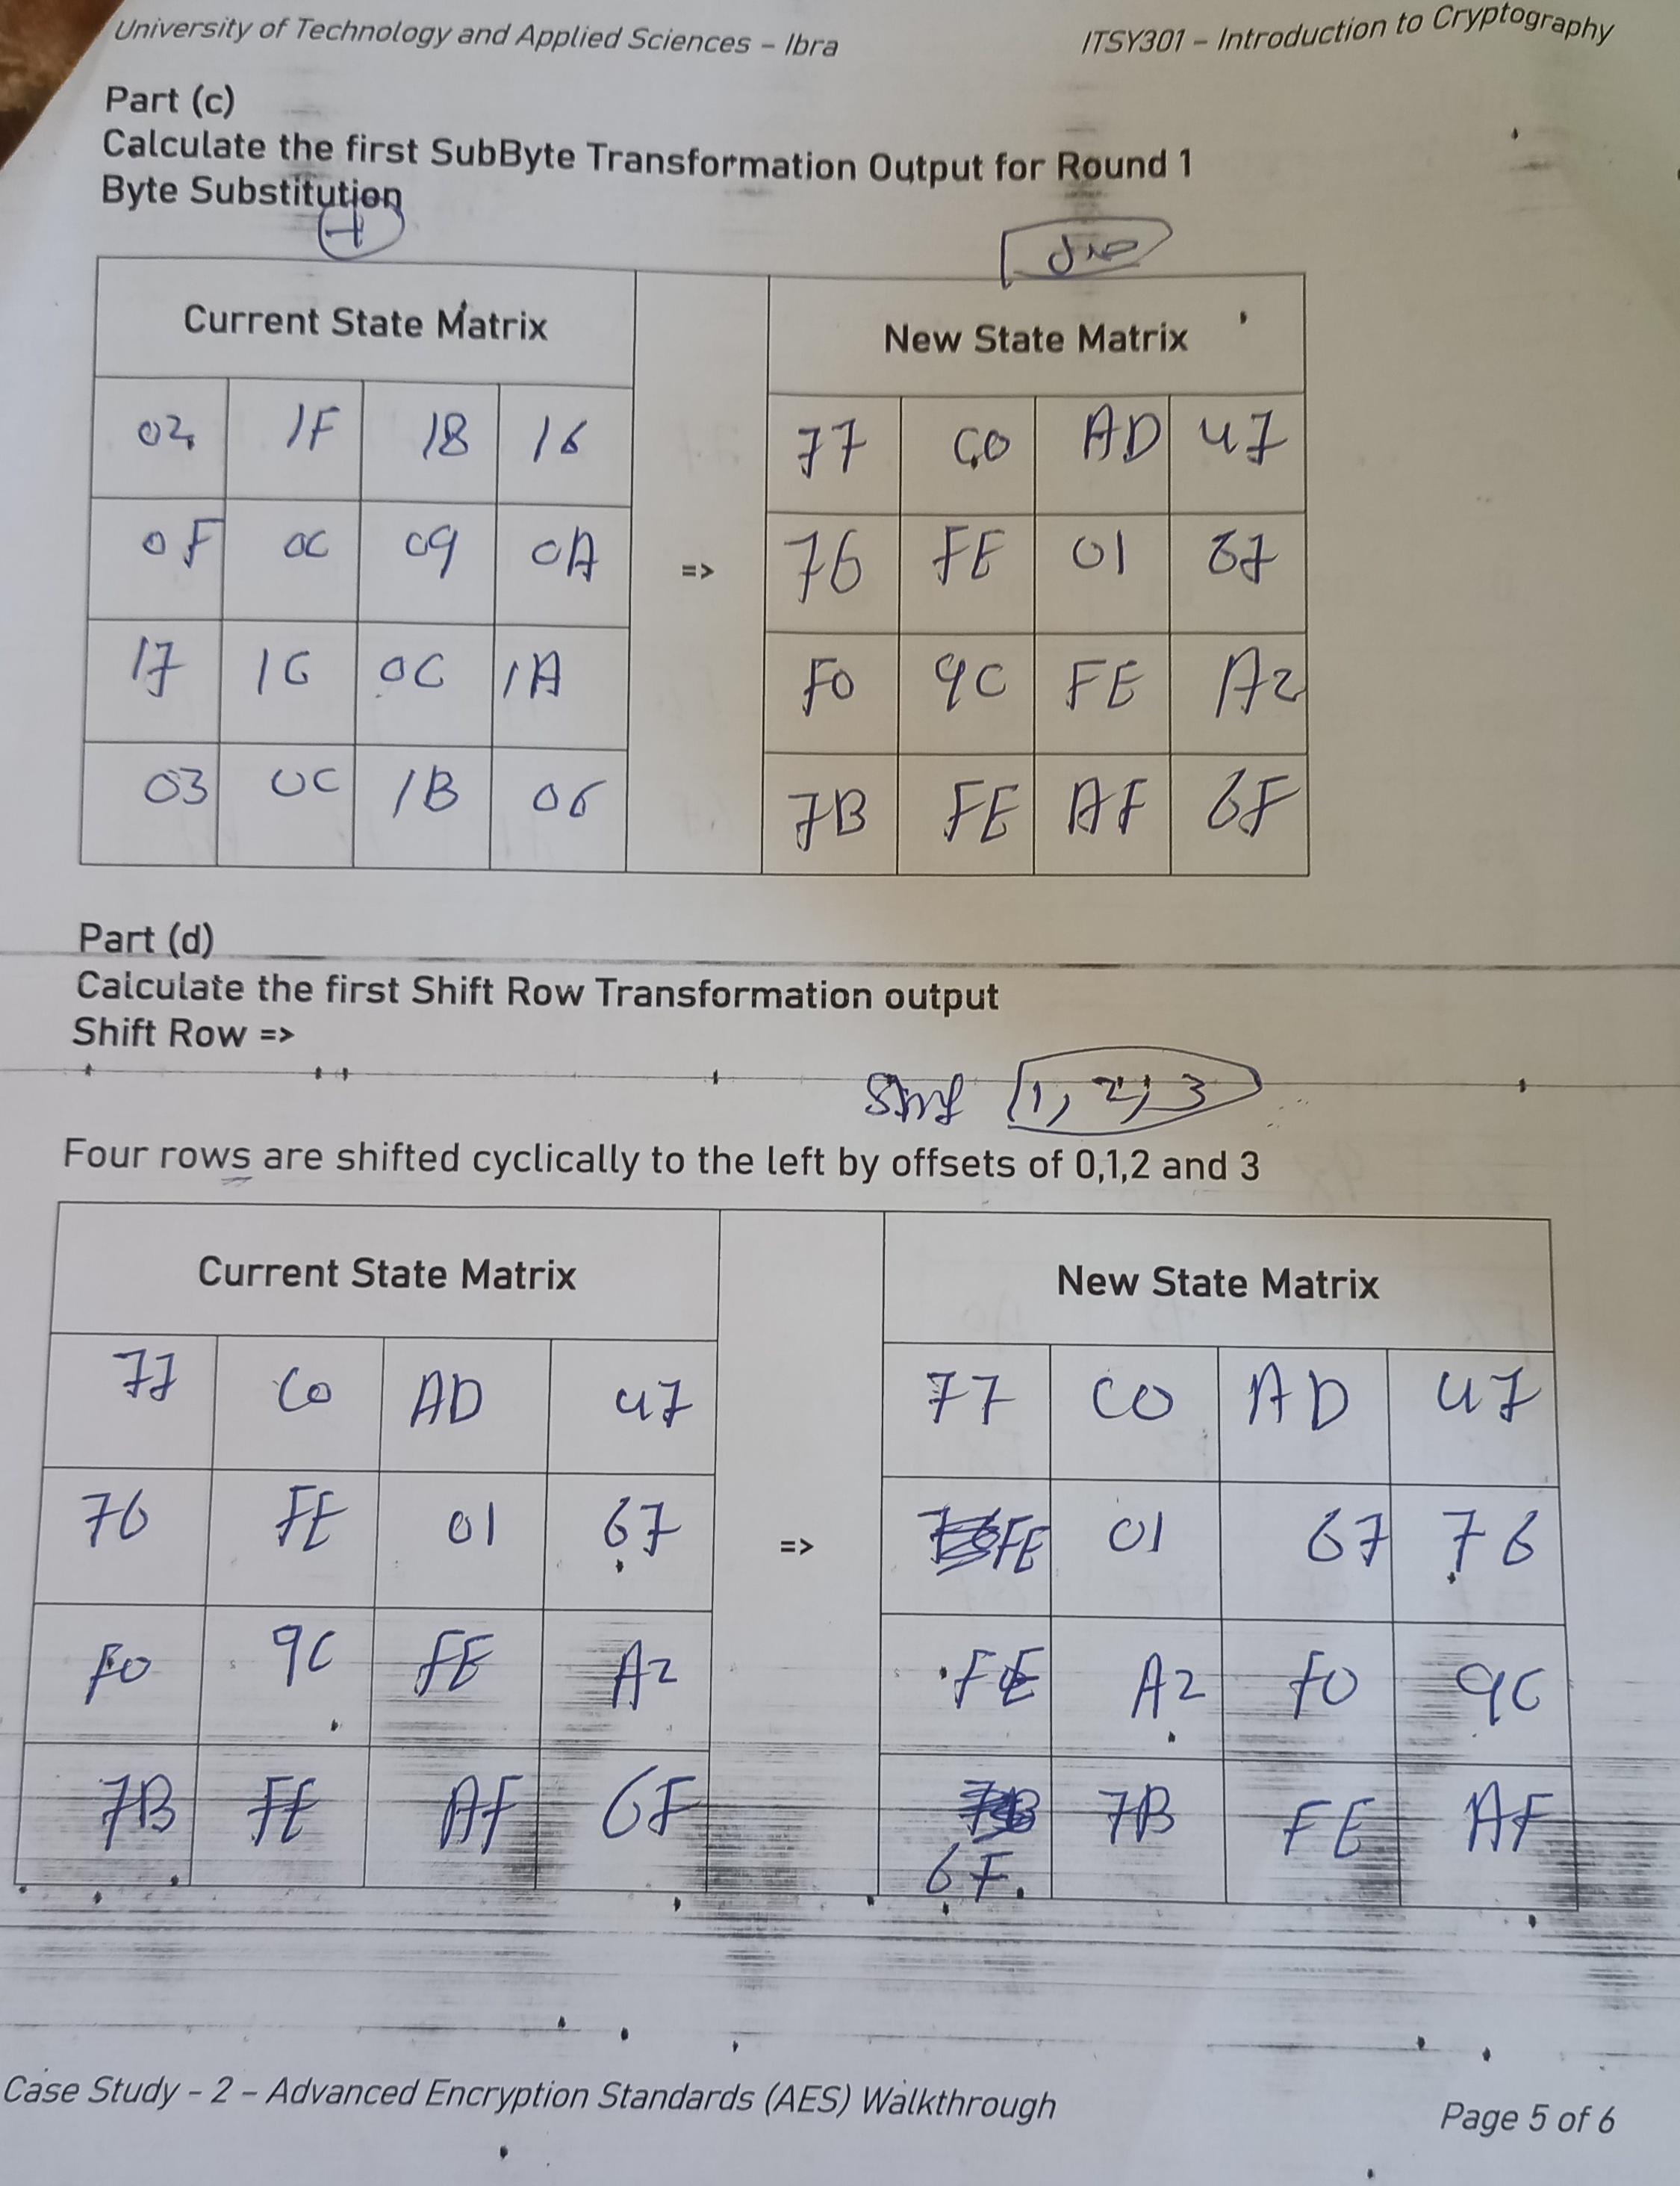 University of Technology and Applied Sciences – Ibra
ITSY301 – Introduction to Cryptography
Part (c)
Calculate the first SubByte Transformation Output for Round 1
Byte Substitution
Current State Matrix
New State Matrix
02 1F 18 16 77 C0 AD 47
0F 0C 09 0A => 76 FE 01 67
17 1C 0C 1A F0 9C FE A2
03 0C 1B 06 7B FE AF 6F
Part (d)
Calculate the first Shift Row Transformation output
Shift Row =>
1, 2, 3
Four rows are shifted cyclically to the left by offsets of 0,1,2 and 3
Current State Matrix
New State Matrix
77 C0 AD 47 77 C0 AD 47
76 FE 01 67 => FE 01 67 76
F0 9C FE A2 FE A2 F0 9C
7B FE AF 6F 7B FE AF
6F.
Case Study - 2 – Advanced Encryption Standards (AES) Walkthrough
Page 5 of 6